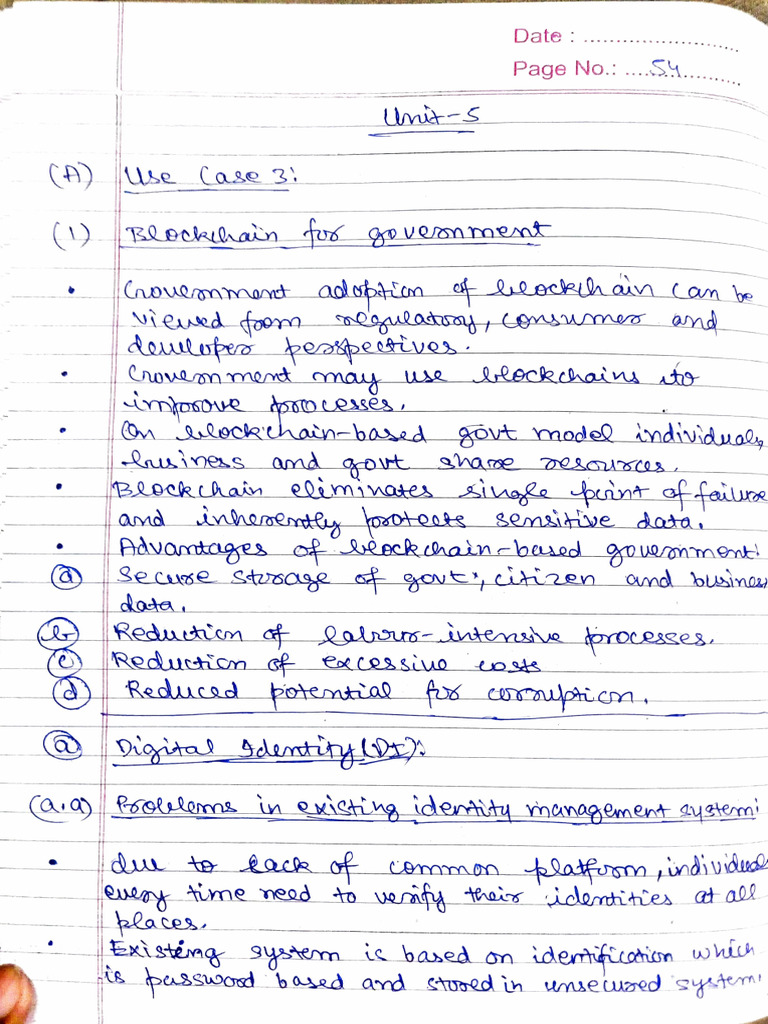 Date : ............................
Page No.: ....54...............
Unit-5
(A) Use Case 3:
(1) Blockchain for government
• Government adoption of blockchain can be
viewed from regulatory, consumer and
developer perspectives.
• Government may use blockchains to
improve processes.
• On blockchain-based govt model individuals,
business and govt share resources.
• Blockchain eliminates single point of failure
and inherently protects sensitive data.
• Advantages of blockchain-based government:
(a) Secure storage of govt., citizen and business
data.
(b) Reduction of labour-intensive processes.
(c) Reduction of excessive costs
(d) Reduced potential for corruption.
(a) Digital Identity (DI):
(a.a) Problems in existing identity management system:
• due to lack of common platform, individual
every time need to verify their identities at all
places.
• Existing system is based on identification which
is password based and stored in unsecured system.